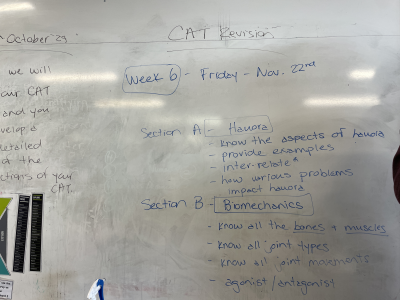 October 29
CAT Revision
we will
our CAT
and you
develop a
detailed
of the
ctions of your
CAT.
Week 6 - Friday - Nov. 22nd
Section A - Hauora
- know the aspects of hauora
- provide examples
- inter-relate*
- how various problems
impact hauora
Section B - Biomechanics
- know all the bones + muscles
- know all joint types
- know all joint movements
- agonist/antagonist